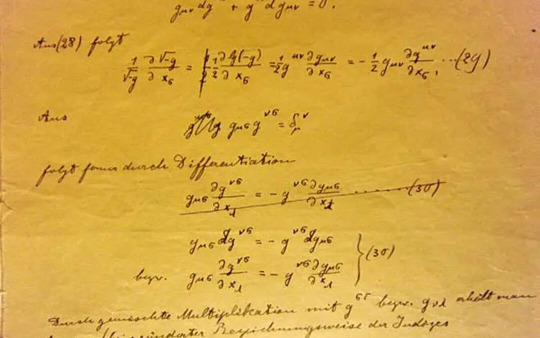 g_{μν} dg^{μν} + g^{μν} dg_{μν} = 0.
Aus (28) folgt
1/√-g ∂√-g/∂x_σ = 1/2 ∂lg(-g)/∂x_σ = 1/2 g^{μν} ∂g_{μν}/∂x_σ = - 1/2 g_{μν} ∂g^{μν}/∂x_σ, ... (29)
Aus
g_{μσ} g^{νσ} = δ_μ^ν
folgt ferner durch Differentiation
g_{μσ} ∂g^{νσ}/∂x_λ = - g^{νσ} ∂g_{μσ}/∂x_λ ........ (30)
g_{μσ} dg^{νσ} = - g^{νσ} dg_{μσ}
bezw. g_{μσ} ∂g^{νσ}/∂x_λ = - g^{νσ} ∂g_{μσ}/∂x_λ } (30)
Durch gemischte Multiplikation mit g^{στ} bezw. g_{νλ} erhält man
Bezeichnungsweise der Indizes